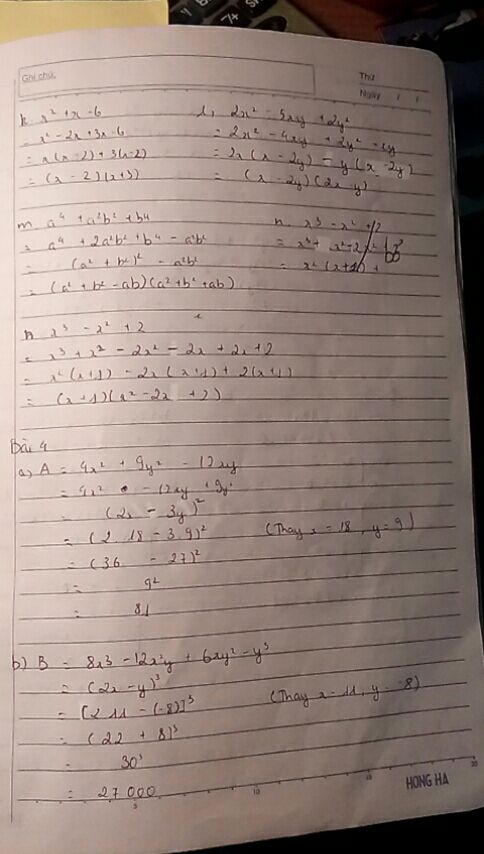 Ghi chú:
Thứ
Ngày / /
k. x² + x - 6
= x² - 2x + 3x - 6
= x(x - 2) + 3(x - 2)
= (x - 2)(x + 3)
l, 2x² - 5xy + 2y²
= 2x² - 4xy + 2y² - xy
= 2x(x - 2y) - y(x - 2y)
= (x - 2y)(2x - y)
m. a⁴ + a²b² + b⁴
= a⁴ + 2a²b² + b⁴ - a²b²
= (a² + b²)² - a²b²
= (a² + b² - ab)(a² + b² + ab)
n. x³ - x² + 2
= x² (x + 1) +
n x³ - x² + 2
= x³ + x² - 2x² - 2x + 2x + 2
= x²(x + 1) - 2x(x + 1) + 2(x + 1)
= (x + 1)(x² - 2x + 2)
Bài 4
a) A = 4x² + 9y² - 12xy
= 4x² - 12xy + 9y²
= (2x - 3y)²
= (2.18 - 3.9)² (Thay x = 18, y = 9)
= (36 - 27)²
= 9²
= 81
b) B = 8x3 - 12x²y + 6xy² - y³
= (2x - y)³
= [2.11 - (-8)]³ (Thay x = 11, y = -8)
= (22 + 8)³
= 30³
= 27000
5 10 15 20
HONG HA